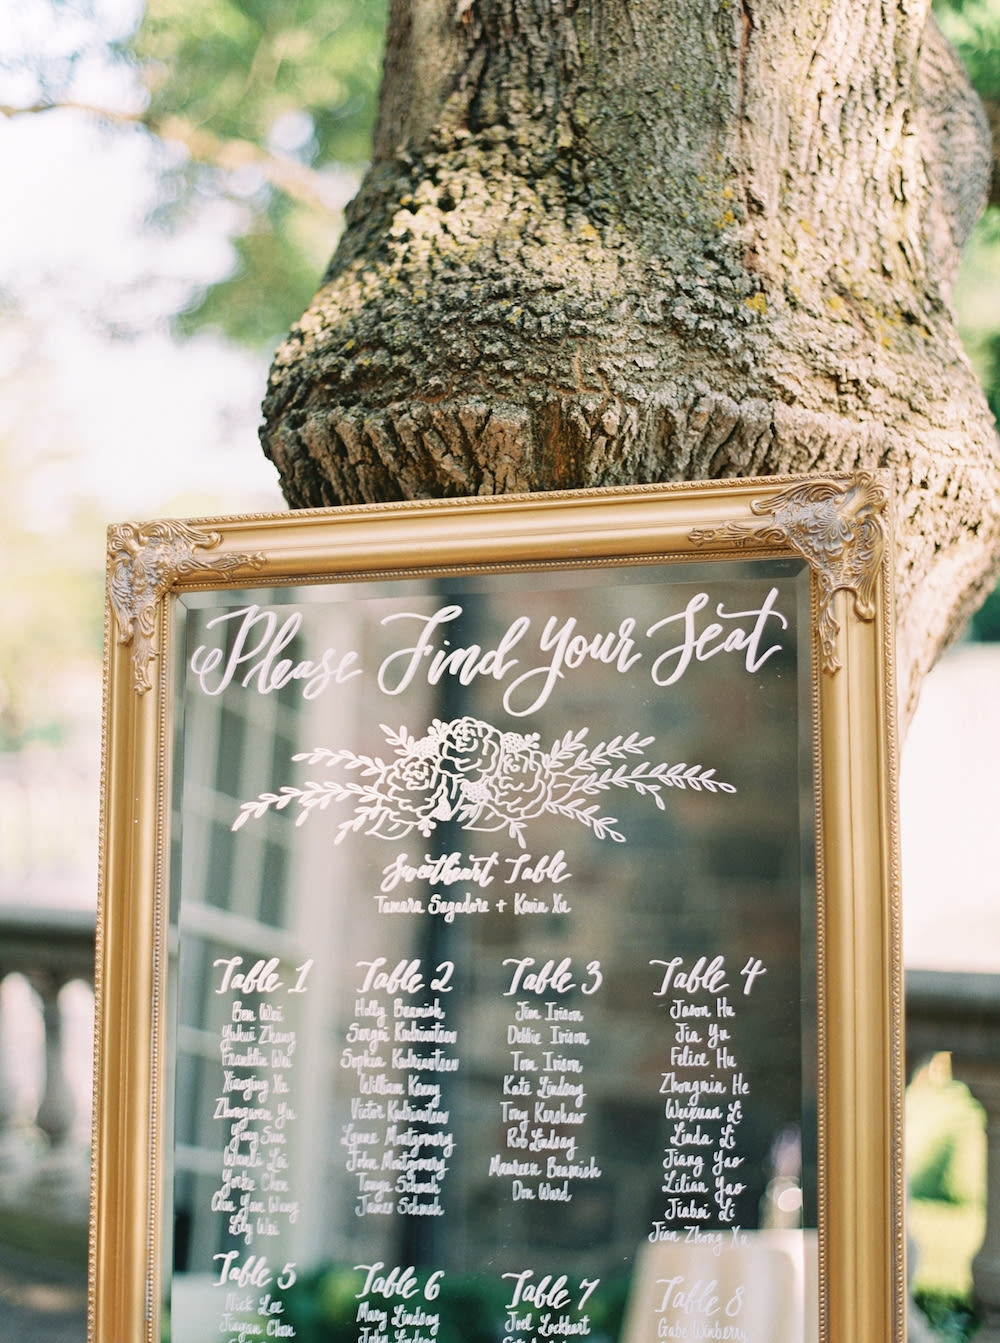 Please Find Your Seat
Sweetheart Table
Tamara Sagadore + Kevin Xu
Table 1
Ben Wei
Yuhui Zhang
Franklin Wei
Xiaoying Xu
Zhongwen Yu
Ying Sun
Wanli Lei
Yorke Chen
Chin Yan Wang
Lily Wei
Table 2
Holly Beamish
Sergii Kudriantsev
Sophia Kudriantsev
William Kenny
Victor Kudriantsev
Lynne Montgomery
John Montgomery
Tanya Schmah
James Schmah
Table 3
Jim Irison
Debbie Irison
Tom Irison
Kate Lindsay
Tony Kershaw
Rob Lindsay
Maureen Beamish
Don Ward
Table 4
Jason Hu
Jia Yu
Felice Hu
Zhongmin He
Weixuan Li
Linda Li
Jiang Yao
Lilian Yao
Jiabei Li
Jian Zhong Xu
Table 5
Nick Lee
Jiayan Chen
Table 6
Mary Lindsay
John Lindsay
Table 7
Joel Lockhart
Table 8
Gabe Winberry